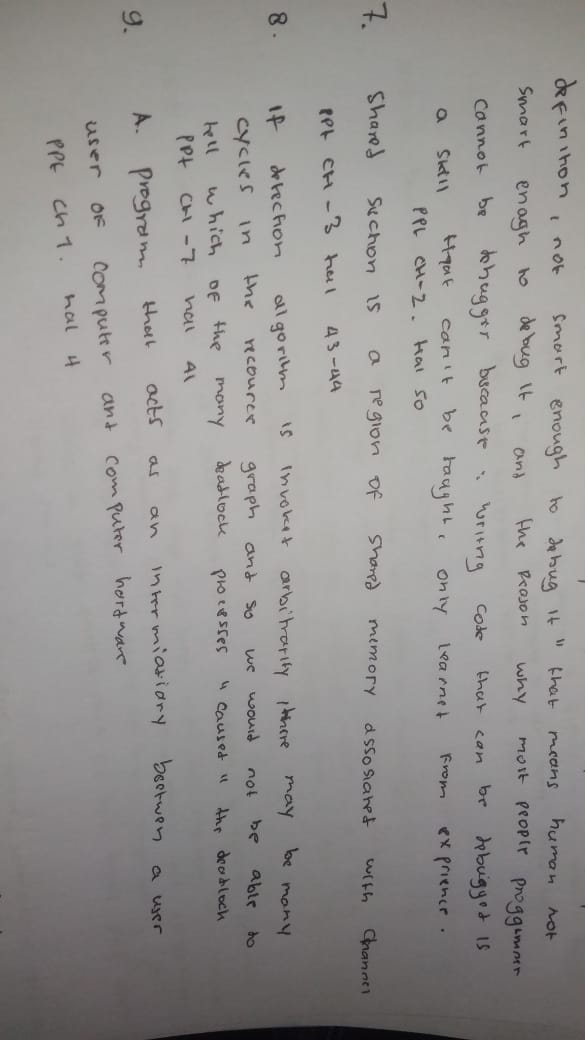 definition, not smart enough to debug it" that means human not
smart enogh to debug it, and the reason why most people proggammer
cannot be debugger because : writing code that can be debugged is
a skill that can't be taught, only learnet from exprience.
ppt CH-2. Hal 50
7. Shared section is a region of shared memory assosiated with channel
ppt CH-3 hal 43-44
8. If detection algorithm is invoket arbitrarily, there may be many
cycles in the recource graph and so we would not be able to
tell which of the many deadlock processes "caused" the deadlock
ppt CH-7 hal 41
9. A. program that acts as an intermiatiary beetwen a user
user of computer and computer hardware
ppt Ch 1. hal 4